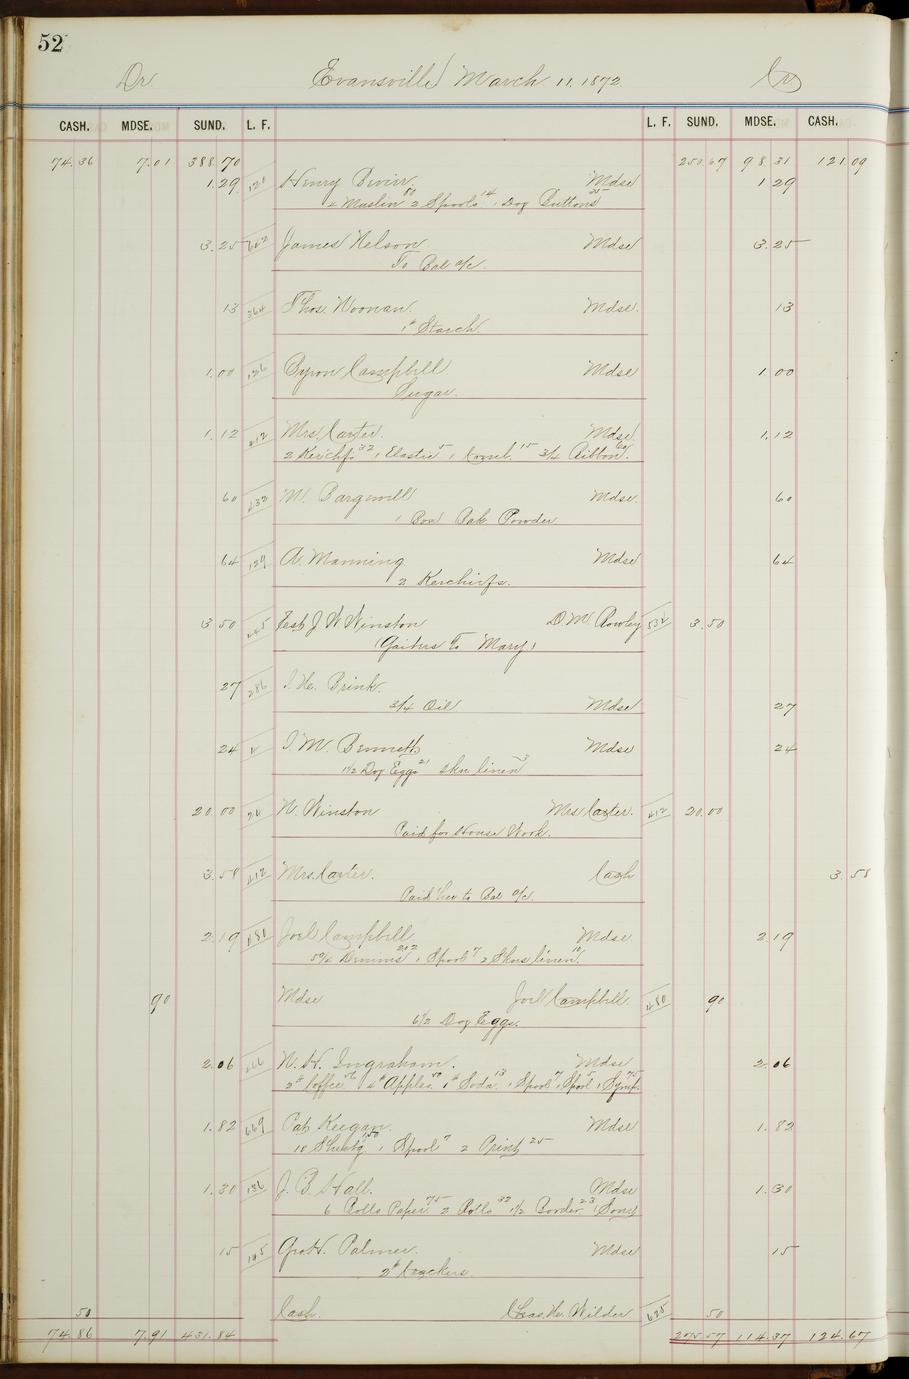 52
Dr Evansville March 11. 1872. Cr
CASH. MDSE. SUND. L. F. L. F. SUND. MDSE. CASH.
74.36 7.01 388.70 250.67 98.31 121.09
1.29 Henry Mdse 1 29
Muslin 80 2 Spools 14 1 Doz Buttons 25
3.25 James Nelson Mdse 3.25
To Bal a/c.
13 364 Thos. Noonan. Mdse. 13
1# Starch.
1.00 126 Byron Campbell Mdse 1 00
Sugar.
1.12 412 Mrs. Carter. Mdse 1.12
2 Kerchfs 32 1 Elastic 5 1 Comb. 15 3/4 Ribbon. 60
60 432 M. Bargewell Mdse. 60
1 Box Bak Powder
64 129 A. Manning Mdse 64
2 Kerchiefs.
3 50 Est J W Winston D. M. Rowley 532 3.50
(Gaiters To Mary)
27 286 Brink.
3/4 Oil Mdse 27
24 M. Bennett Mdse 24
1 1/2 Doz Eggs 21 skn linen 3
20.00 W. Winston Mrs Carter. 412 20.00
Paid for House Work.
3.58 412 Mrs. Carter. Cash 3.58
Paid her to Bal a/c
2.19 480 Joel Campbell Mdse. 2.19
Denims 202 1 Spool 7 2 Skns linen. 10
90 Mdse Joel Campbell 480 90
6 1/2 Doz Eggs.
2.06 N. H. Ingraham. Mdse 2.06
2# Coffee 56 4# Apples 50 1# Soda 13 1 Spool 7 1 Spool 5 1 Syrup. 75
1.82 669 Pat Keegan. Mdse 1.82
10 Sheetg 150 1 Spool 7 2 Print 25
1.30 136 J. B. Hall. Mdse 1.30
6 Rolls Paper 75 2 Rolls 32 1/2 Border 23
15 145 Geo H. Palmer. Mdse 15
2# Crackers.
50 Cash. Chas. H. Wilder 635 50
74.86 7.91 431.84 275.57 114.37 124.67